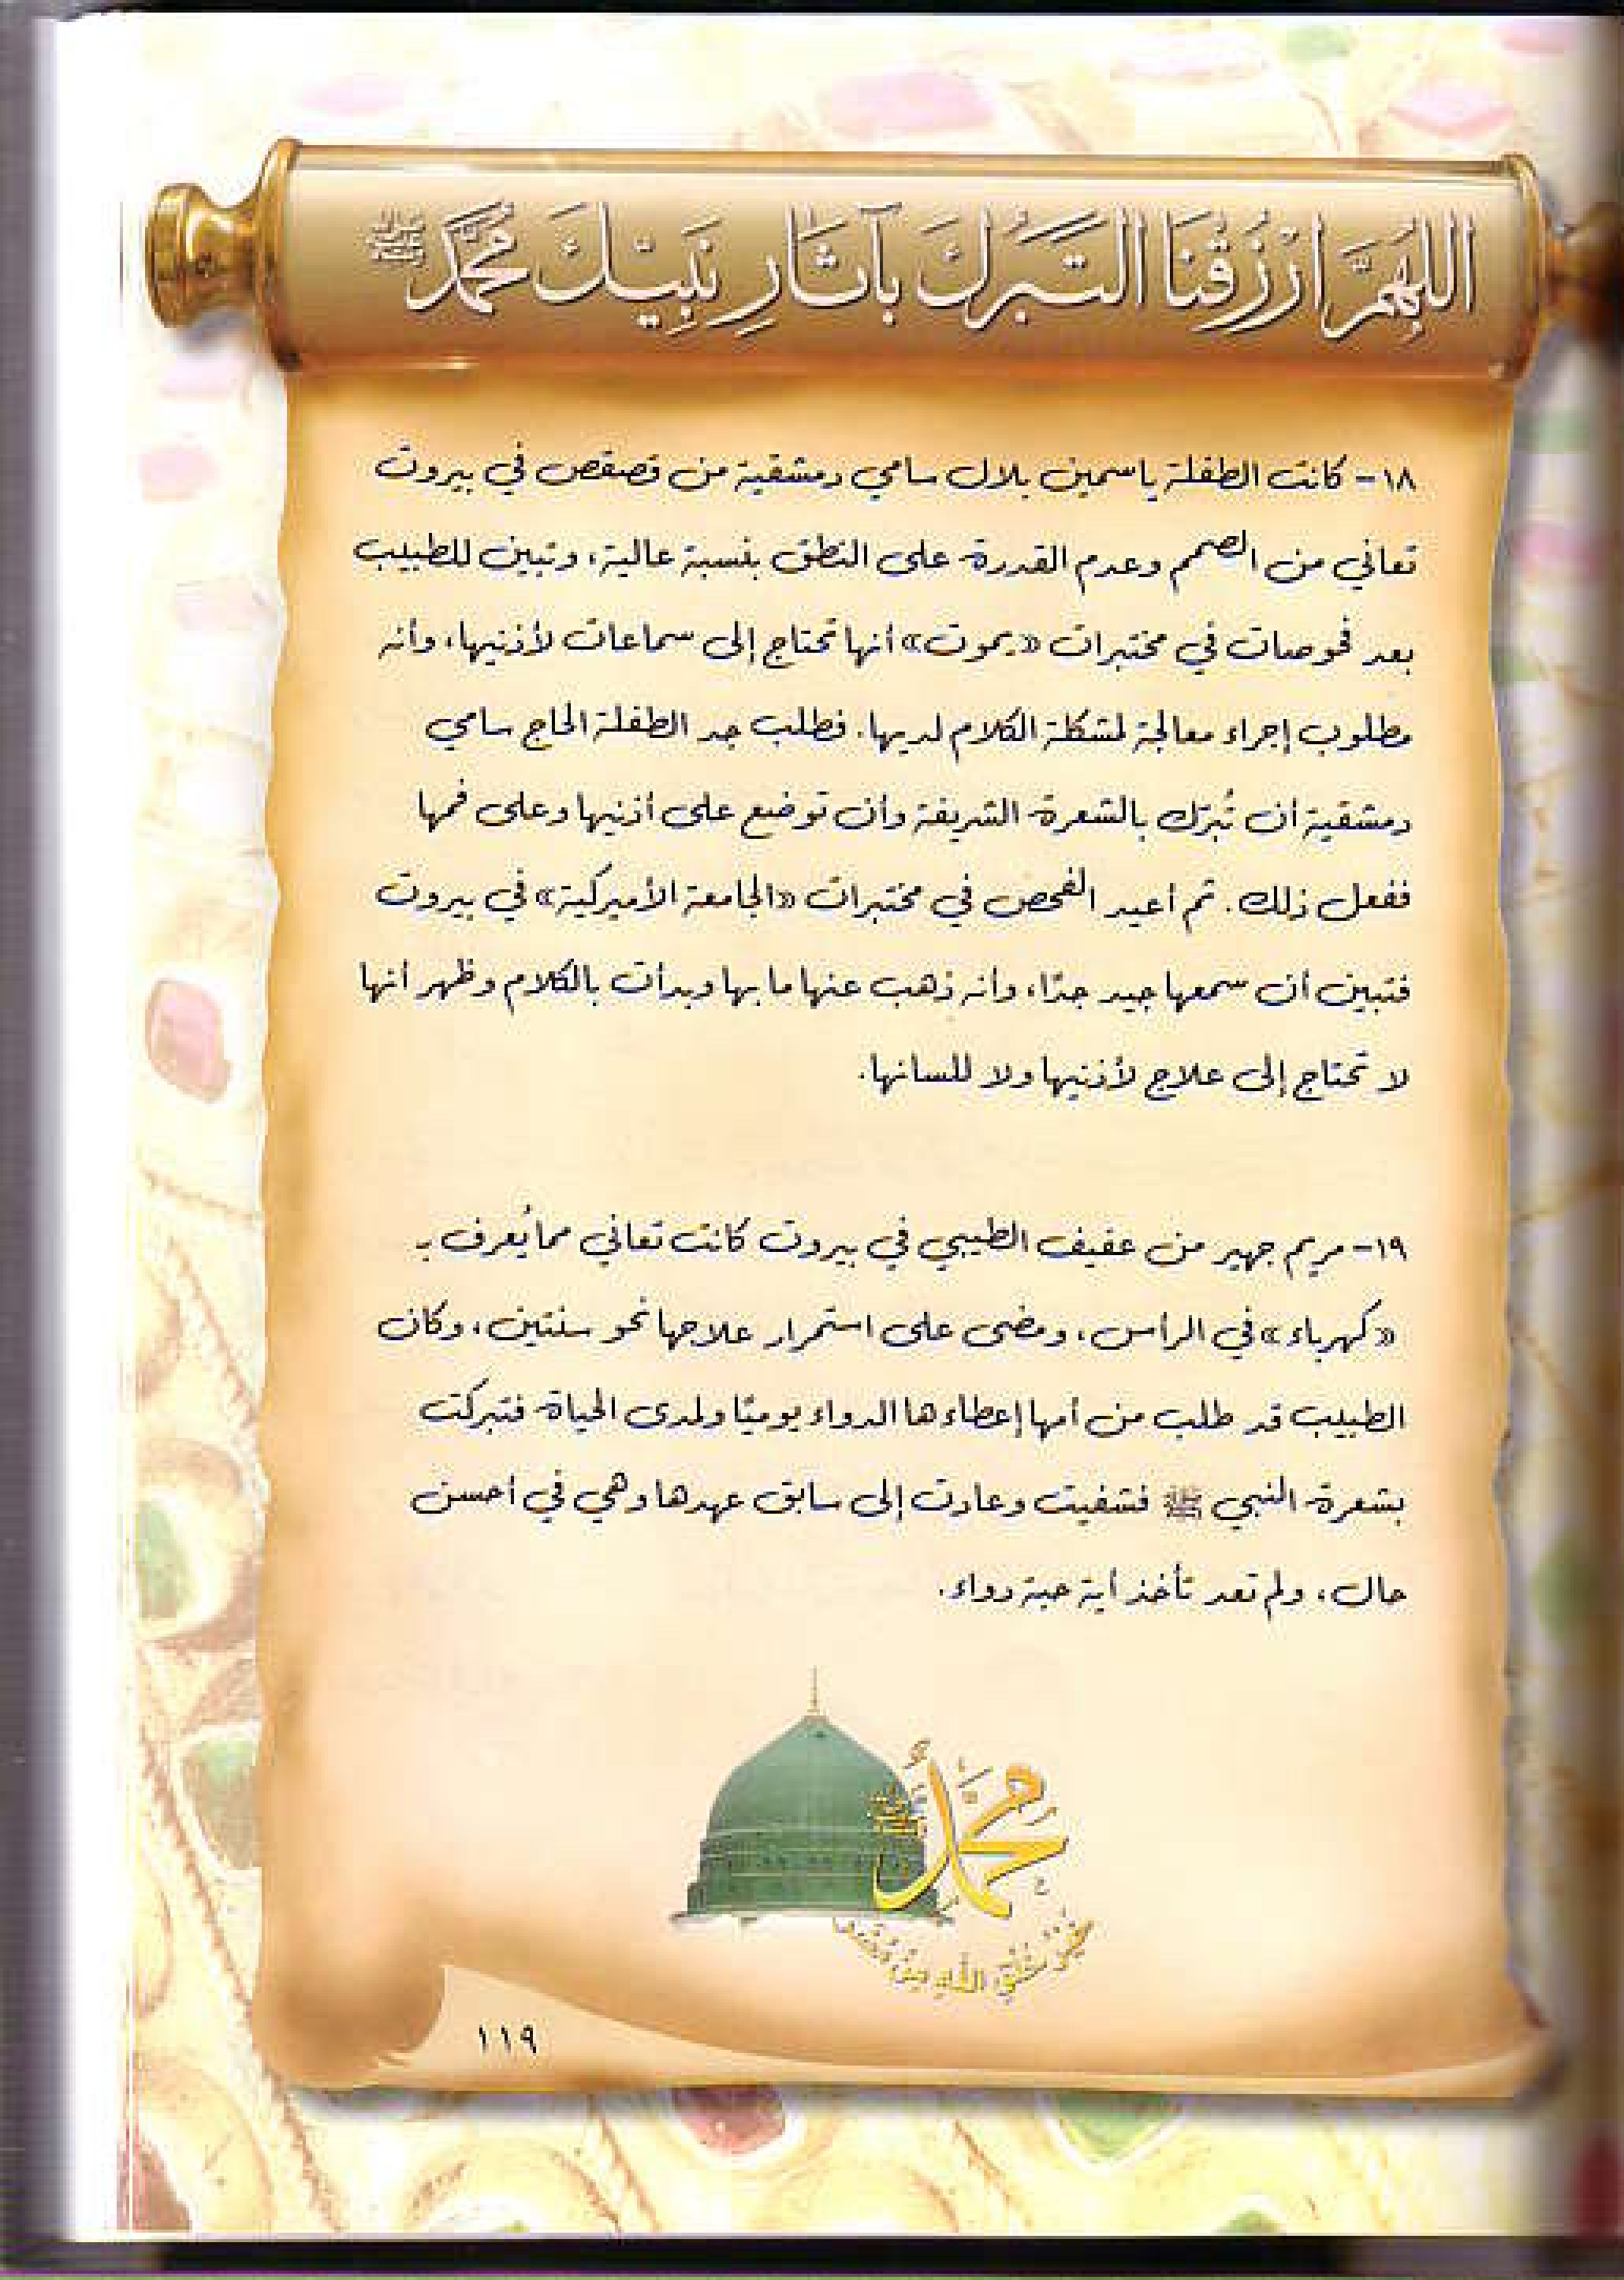 اللهُمَّ ارْزُقْنَا التَّبَرُّكَ بِآثَارِ نَبِيِّكَ مُحَمَّدٍ ﷺ
١٨- كانت الطفلة ياسمين بلال سامي دمشقية من قصقص في بيروت
تعاني من الصمم وعدم القدرة على النطق بنسبة عالية، وتبين للطبيب
بعد فحوصات في مختبرات «يموت» أنها تحتاج إلى سماعات لأذنيها، وأنه
مطلوب إجراء معالجة لمشكلة الكلام لديها. فطلب جد الطفلة الحاج سامي
دمشقية أن تُبرّك بالشعرة الشريفة وأن توضع على أذنيها وعلى فمها
ففعل ذلك. ثم أعيد الفحص في مختبرات «الجامعة الأميركية» في بيروت
فتبين أن سمعها جيد جدًا، وأنه ذهب عنها ما بها وبدأت بالكلام وظهر أنها
لا تحتاج إلى علاج لأذنيها ولا للسانها.
١٩- مريم جهير من عفيف الطيبي في بيروت كانت تعاني مما يُعرف بـ
«كهرباء» في الرأس، ومضى على استمرار علاجها نحو سنتين، وكان
الطبيب قد طلب من أمها إعطاءها الدواء يوميًا ولمدى الحياة فتبركت
بشعرة النبي ﷺ فشفيت وعادت إلى سابق عهدها وهي في أحسن
حال، ولم تعد تأخذ أية حبة دواء.
مُحَمَّدٌ ﷺ
خَيْرُ خَلْقِ اللهِ
١١٩